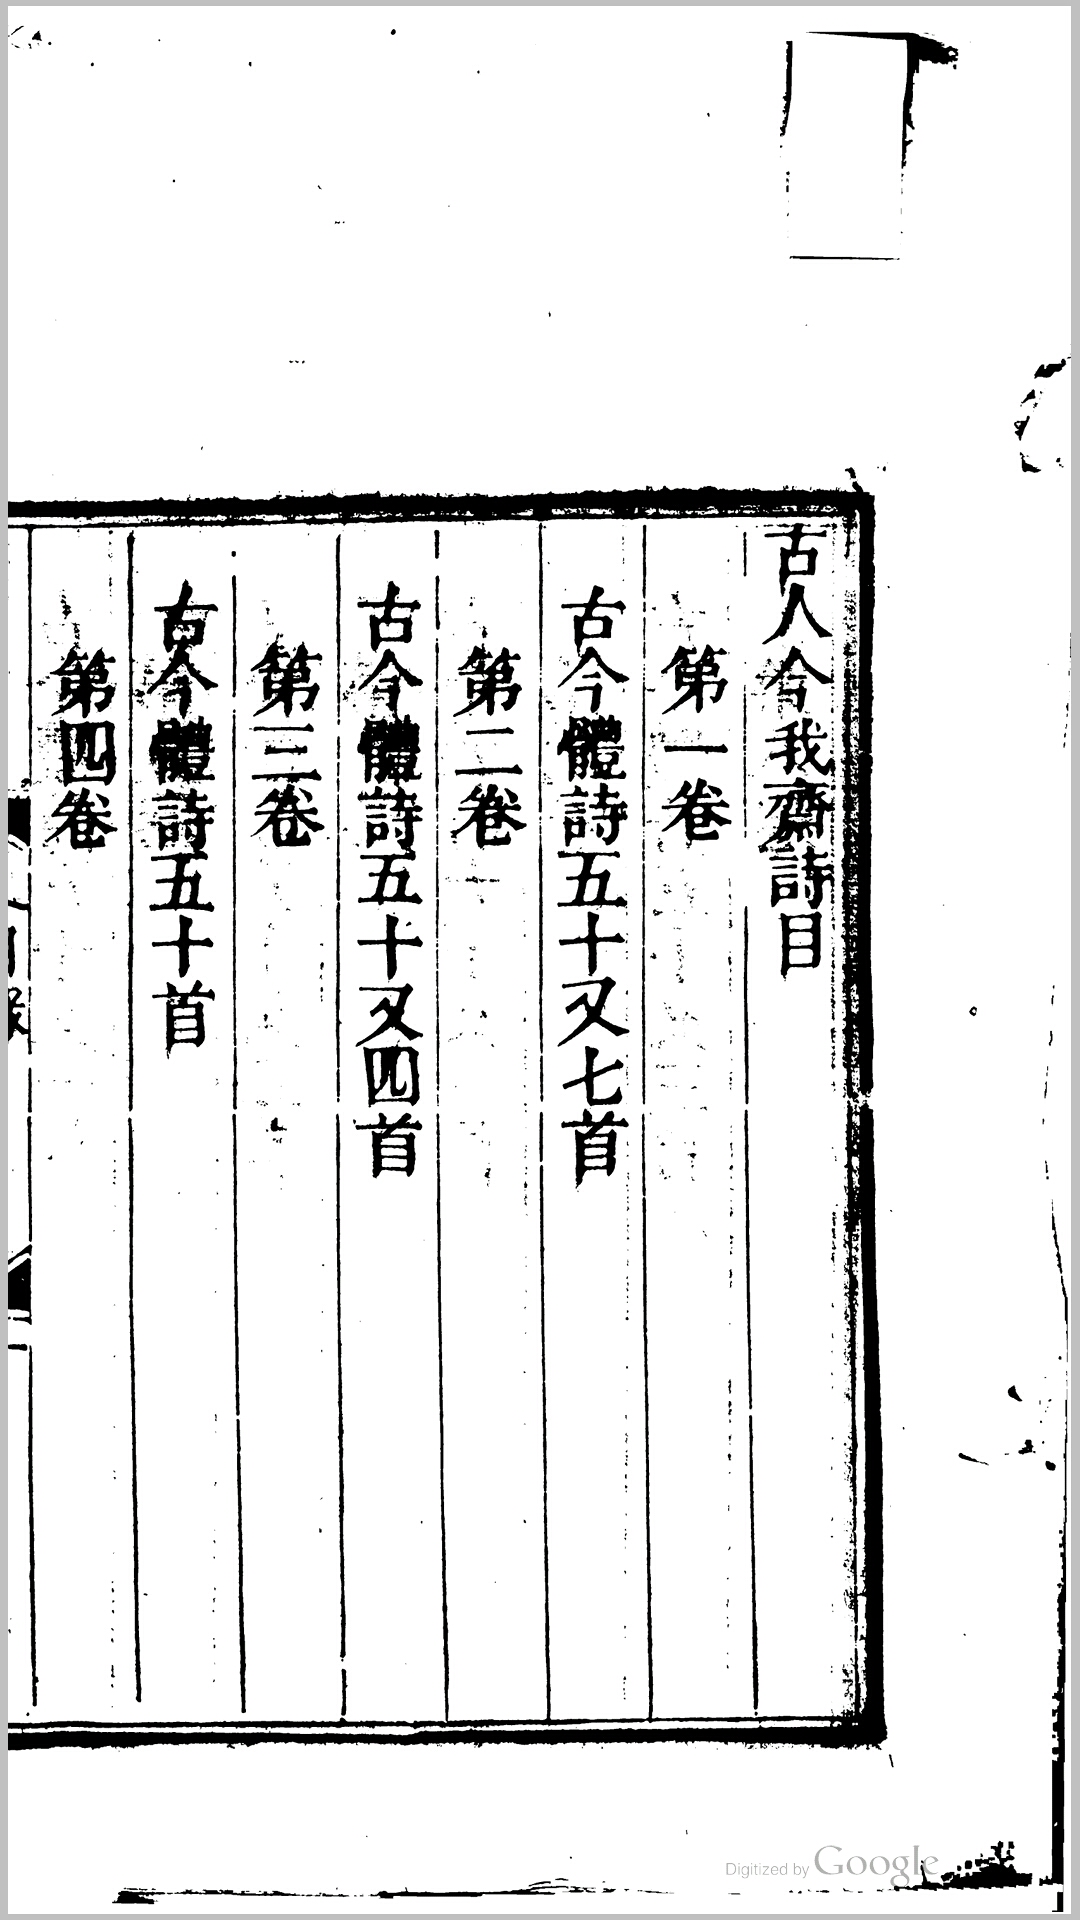 古人今我齋詩目
第一卷
古今體詩五十又七首
第二卷
古今體詩五十又四首
第三卷
古今體詩五十首
第四卷
Digitized by Google